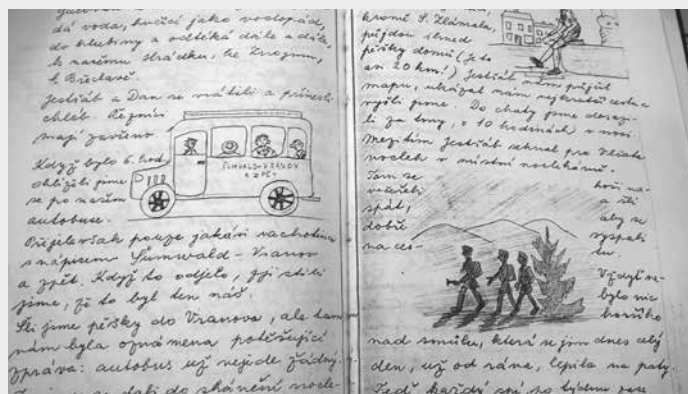 dá voda, hučící jako vodopád,
do hlubiny a odtéká dále a dále,
k našemu Hrádku, ke Znojmu,
k Břeclavě.
Jestřáb a Dan se vrátili a přinesli
chléb. Řezníci
mají zavřeno.
Když bylo 6 hod,
ohlíželi jsme
se po našem
autobuse.
ŠUMVALD-VRANOV
A ZPĚT
Přijela však pouze jakási rachotina
s nápisem Šumvald - Vranov
a zpět. Když to odjelo, zjistili
jsme, že to byl ten náš.
Šli jsme pěšky do Vranova, ale tam
nám byla oznámena potěšující
zpráva: autobus už nejede žádný.
se dali do shánění nocle-
kromě S. Zlámala,
půjdou ihned
pěšky domů (je to
asi 20 km!) Jestřáb nám půjčil
mapu, ukázal nám nejkratší cestu a
vyšli jsme. Do chaty jsme dorazi-
li za tmy, o 10 hodinách v noci.
Mezitím Jestřáb sehnal pro
nocleh v místní noclehárně.
Tam se
navečeřeli a šli
spát, aby se
dobře vyspali
na ces- tu.
Vždyť ne-
bylo nic
horšího
nad smůlu, která se jim dnes celý
den, už od rána, lepila na paty.
Teď každý spí po